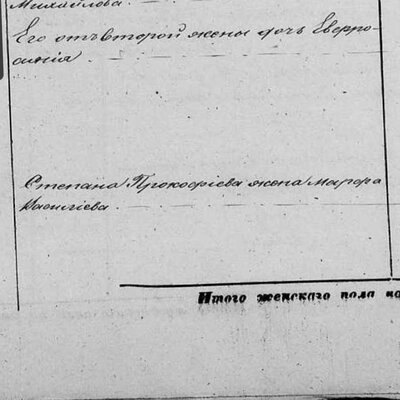 Михайлова.
Его отъ второй жены дочь Евфро-
синія.
Степана Прокофіева жена Марфа
Василіева.
Итого женскаго пола